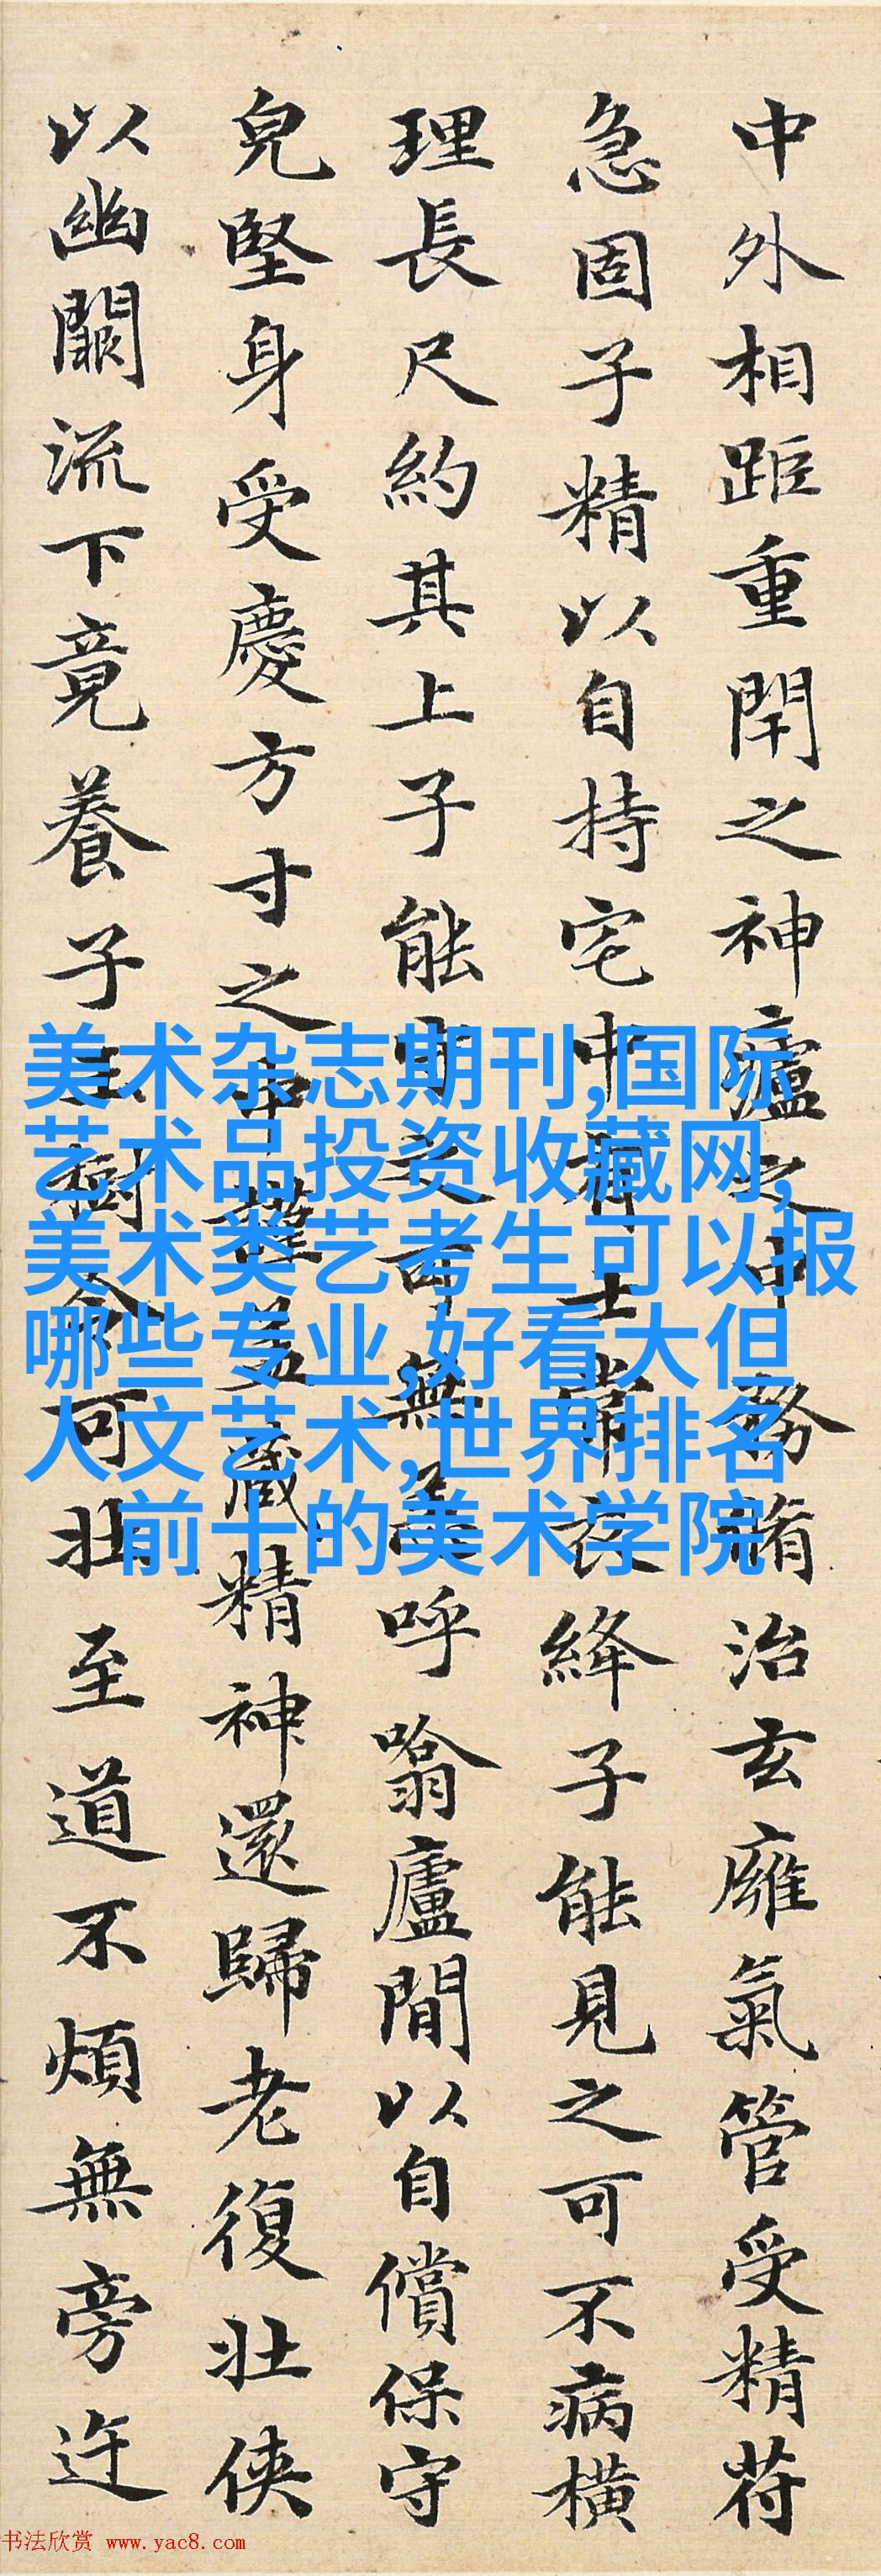 中外相距重閇之神廬之中務脩治玄廱氣管受精苻
急固子精以自持宅中有士常衣絳子能見之可不病橫
理長尺約其上子能守之可無恙呼噏廬間以自償保守
皃堅身受慶方寸之中謹蓋藏精神還歸老復壯俠
以幽闕流下竟養子玉樹令可壯至道不煩無旁迕
美术杂志期刊,国际
艺术品投资收藏网,
美术类艺考生可以报
哪些专业,好看大但
人文艺术,世界排名
前十的美术学院
书法欣赏 www.yac8.com